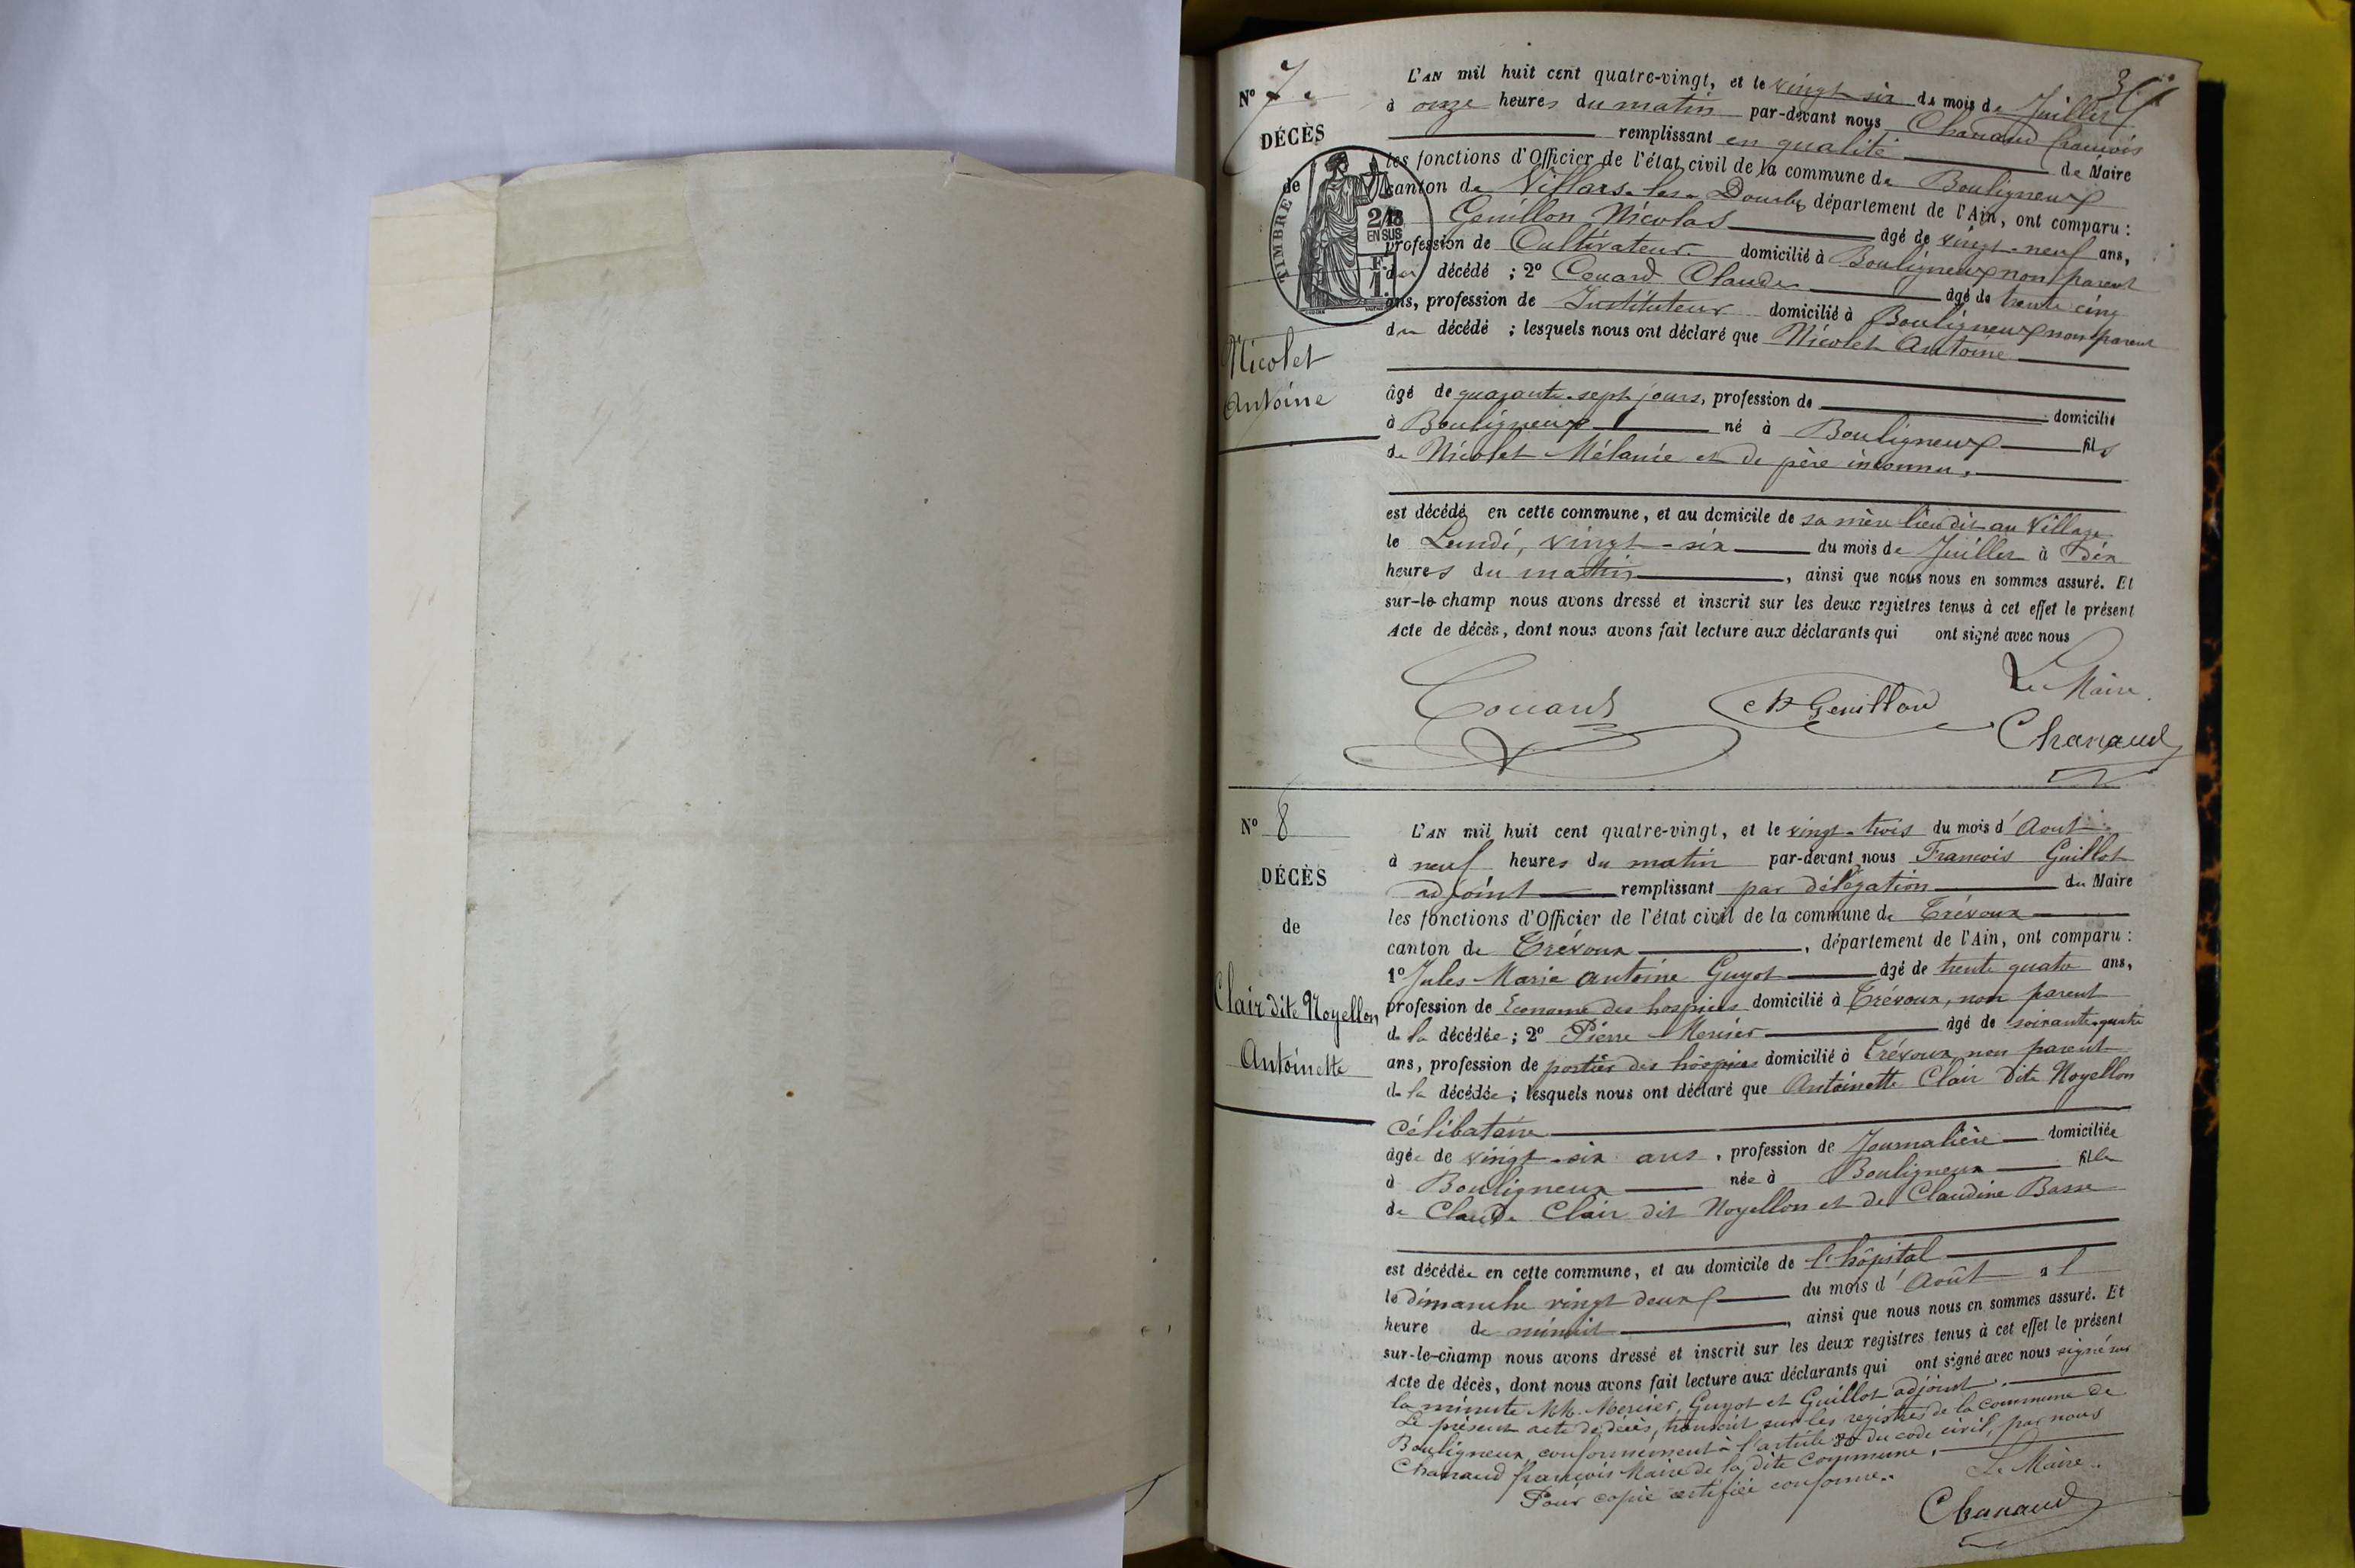 N° 7.
DÉCÈS
de
TIMBRE
2/10
EN SUS
F.
1.
Nicolet
Antoine
L'AN mil huit cent quatre-vingt, et le vingt six du mois de Juillet
à onze heures du matin par-devant nous Chanaud françois
remplissant en qualité de Maire
les fonctions d'Officier de l'état civil de la commune de Bouligneux
canton de Villars-les-Dombes département de l'Ain, ont comparu :
Genillon Nicolas âgé de vingt-neuf ans,
profession de Cultivateur domicilié à Bouligneux non parent
du décédé ; 2° Couard Claude âgé de trente cinq
ans, profession de Instituteur domicilié à Bouligneux non parent
du décédé ; lesquels nous ont déclaré que Nicolet Antoine
âgé de quarante-sept jours, profession de domicilié
à Bouligneux né à Bouligneux fils
de Nicolet Mélanie et de père inconnu,
est décédé en cette commune, et au domicile de sa mère lieu dit au Village
le Lundi, vingt-six du mois de Juillet à Dix
heures du matin, ainsi que nous nous en sommes assuré. Et
sur-le-champ nous avons dressé et inscrit sur les deux registres tenus à cet effet le présent
Acte de décès, dont nous avons fait lecture aux déclarants qui ont signé avec nous
Le Maire.
Couard Genillon Chanaud
N° 8
DÉCÈS
de
Clair dite Noyellon
Antoinette
L'AN mil huit cent quatre-vingt, et le vingt-trois du mois d'Aout
à neuf heures du matin par-devant nous Francois Guillot
adjoint remplissant par délégation du Maire
les fonctions d'Officier de l'état civil de la commune de Trévoux
canton de Trévoux, département de l'Ain, ont comparu :
1° Jules Marie Antoine Guyot âgé de trente quatre ans,
profession de Econome des hospices domicilié à Trévoux, non parent
de la décédée ; 2° Pierre Mercier âgé de soixante-quatre
ans, profession de portier des hospices domicilié à Trévoux non parent
de la décédée ; lesquels nous ont déclaré que Antoinette Clair dite Noyellon
Célibataire
âgée de vingt-six ans, profession de Journalière domiciliée
à Bouligneux née à Bouligneux fille
de Claude Clair dit Noyellon et de Claudine Basse
est décédée en cette commune, et au domicile de l'hôpital
le dimanche vingt deux du mois d'Août à l
heure de minuit, ainsi que nous nous en sommes assuré. Et
sur-le-champ nous avons dressé et inscrit sur les deux registres tenus à cet effet le présent
Acte de décès, dont nous avons fait lecture aux déclarants qui ont signé avec nous signé sur
la minute MM. Mercier, Guyot et Guillot adjoint.
Le présent acte de décès, transcrit sur les registres de la commune de
Bouligneux conformément à l'article 80 du code civil, par nous
Chanaud françois Maire de la dite Commune.
Pour copie certifiée conforme. Le Maire.
Chanaud